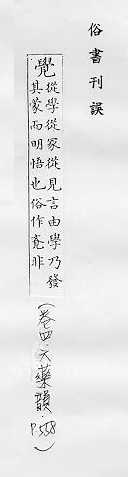 俗書刊誤
覺從學從冡從見言由學乃發
其蒙而明悟也俗作竟非
(卷四.六藥韻.P.558)